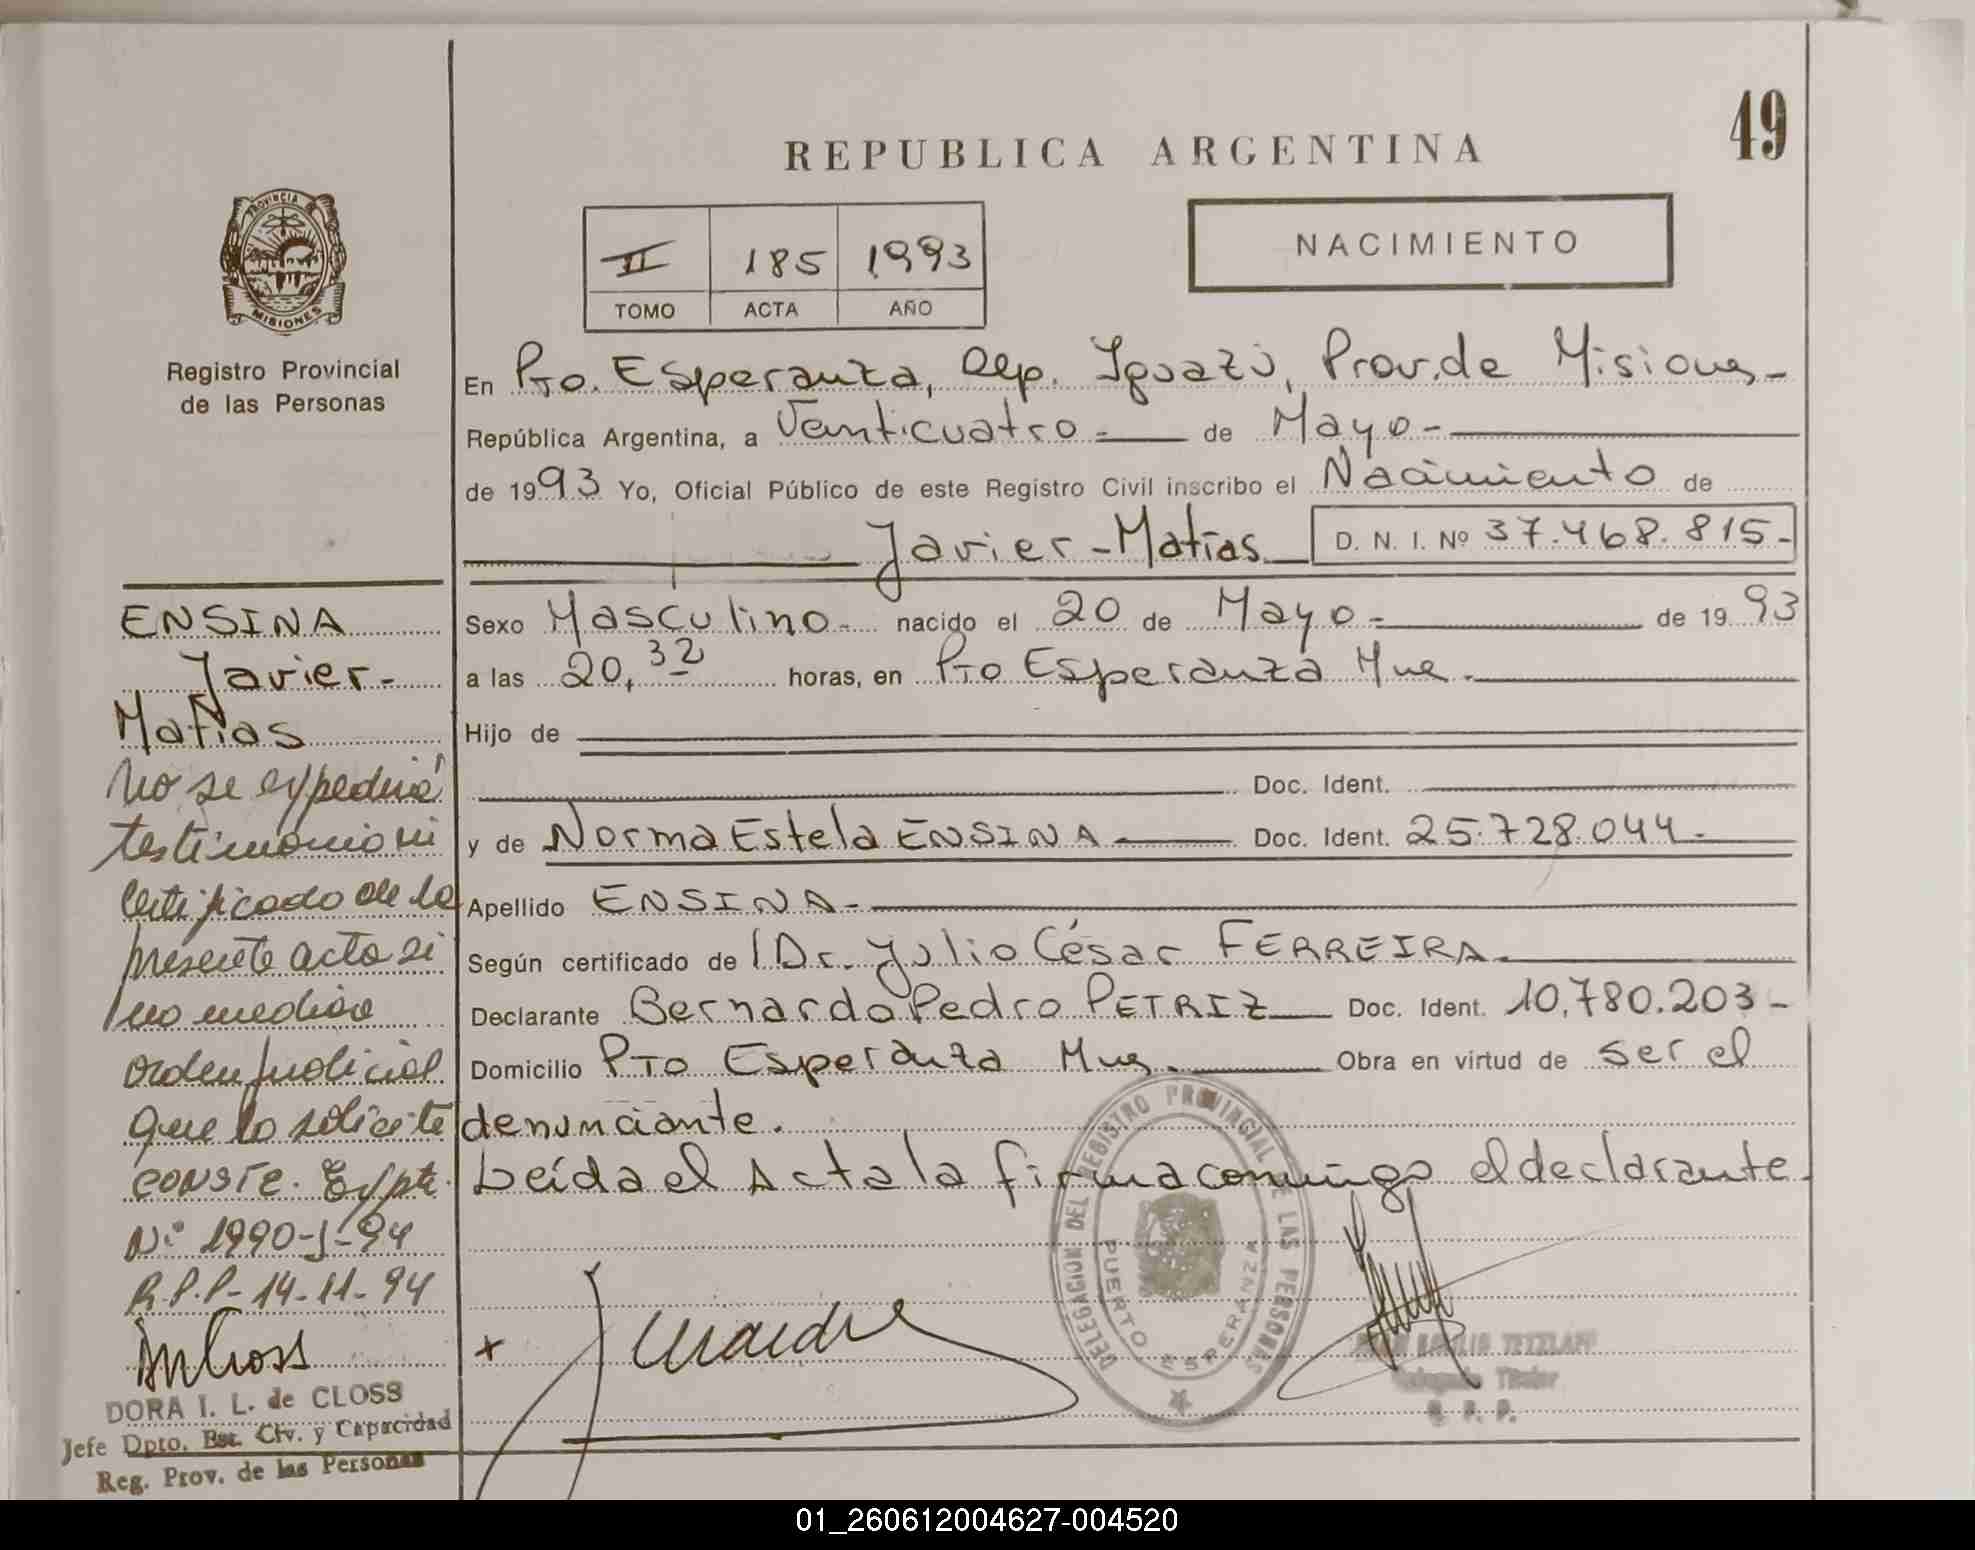 49
REPUBLICA ARGENTINA
PROVINCIA
MISIONES
Registro Provincial
de las Personas
II 185 1993
TOMO ACTA AÑO
NACIMIENTO
En Pto. Esperanza, Dep. Iguazú, Prov. de Misiones-
República Argentina, a Veinticuatro.- de Mayo-
de 1993 Yo, Oficial Público de este Registro Civil inscribo el Nacimiento de
Javier-Matías D. N. I. Nº 37.468.815-
Sexo Masculino- nacido el 20 de Mayo- de 1993
a las 20,32 horas, en Pto Esperanza Mnes.
Hijo de
Doc. Ident.
y de Norma Estela ENSINA Doc. Ident. 25.728.044-
Apellido ENSINA-
Según certificado del Dr. Julio César FERREIRA.
Declarante Bernardo Pedro PETRIZ Doc. Ident. 10.780.203-
Domicilio Pto Esperanza Mnes. Obra en virtud de ser el
denunciante.
Leída el Acta la firma conmigo el declarante.
ENSINA
Javier-
Matías
No se expedirá
testimonio ni
certificado de la
presente acta si
no mediare
orden judicial
que lo solicite
CONSTE. Expte.
Nº 1990-J-94
R.P.P- 14-11-94
DORA I. L. de CLOSS
Jefe Dpto. Est. Civ. y Capacidad
Reg. Prov. de las Personas
DELEGACION DEL REGISTRO PROVINCIAL DE LAS PERSONAS
PUERTO ESPERANZA
TETZLAFF
Delegado Titular
R. P. P.
01_260612004627-004520